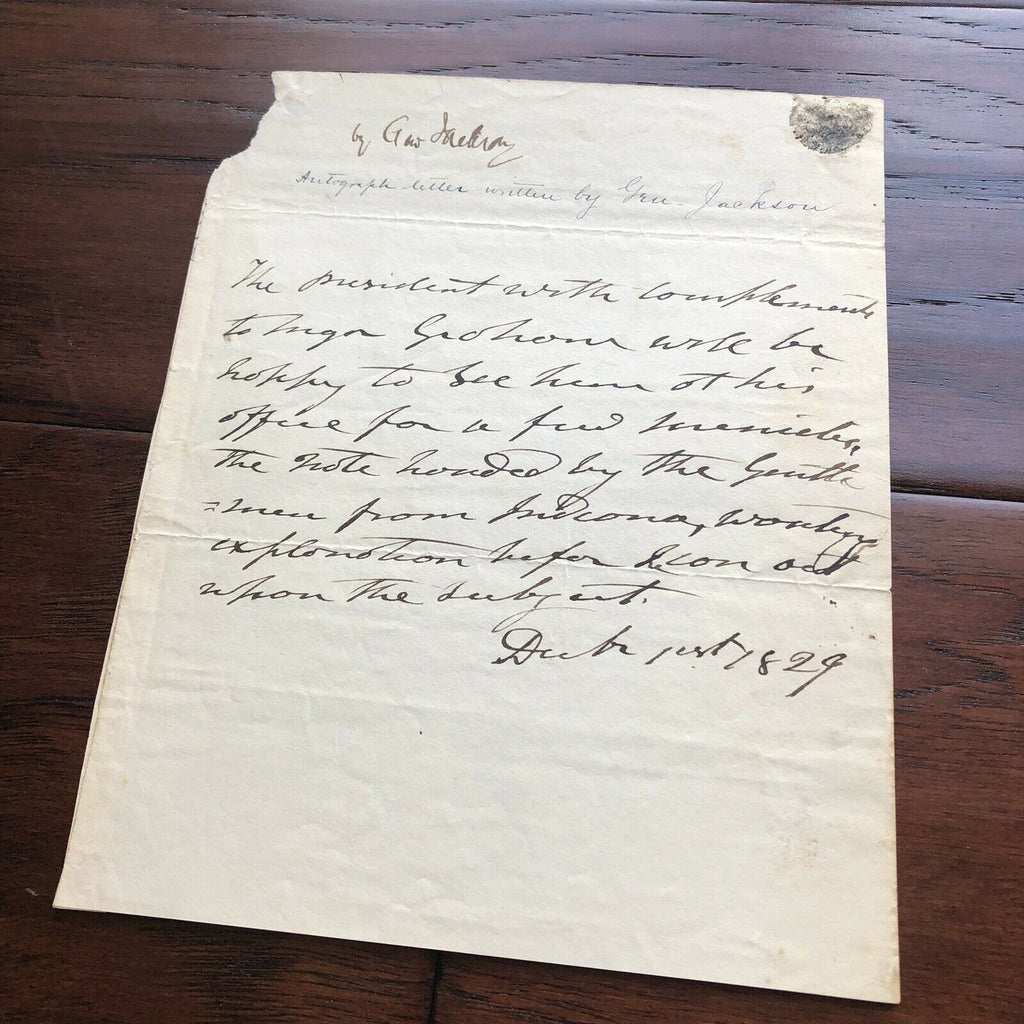 by Gen Jackson
Autograph letter written by Gen. Jackson
The president with complements
to major Graham will be
happy to see him at his
office for a few minutes,
the note handed by the Gentle
=men from Indiana, wants
explanation before I can act
upon the subject.
Decbr 1rst 1829